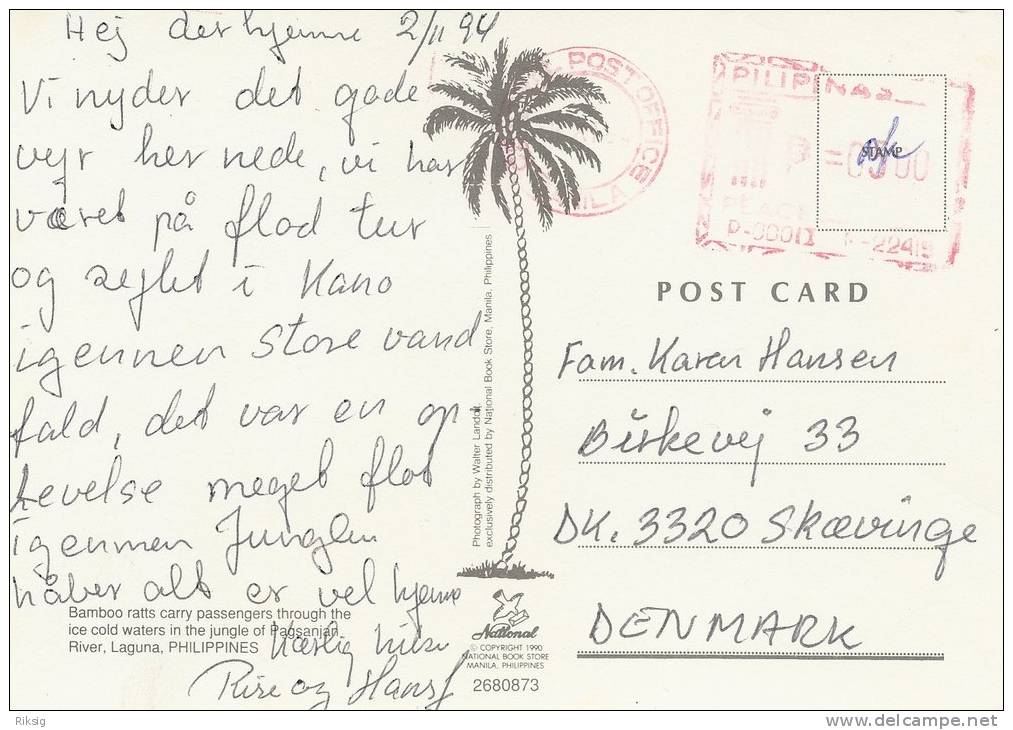 Hej derhjemme 2/11 94
Vi nyder det gode
vejr her nede, vi har
været på flod tur
og sejlet i Kano
igennen store vand
fald, det var en op
levelse meget flot
igennem Junglen
håber alt er vel hjemme
Kærlig hilsen
og Hans
Bamboo ratts carry passengers through the
ice cold waters in the jungle of Pagsanjan
River, Laguna, PHILIPPINES
Photograph by Walter Landolt
exclusively distributed by National Book Store, Manila, Philippines
National
© COPYRIGHT 1990
NATIONAL BOOK STORE
MANILA, PHILIPPINES
2680873
POST OFFICE
MANILA
PILIPINAS
STAMP
POST CARD
Fam. Karen Hansen
Birkevej 33
DK. 3320 Skævinge
DENMARK
Riksig
delcampe.net